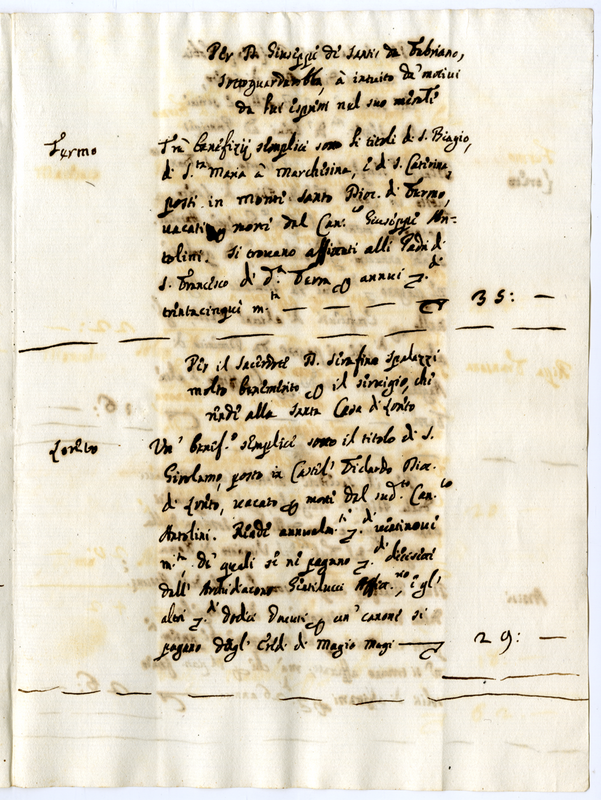 Per D. Giuseppe de Santis da Fabriano,
à intuito de' motivi
da lui espressi nel suo
Fermo
Trè benefizij semplici sotto li titoli di S. Biagio,
di S.ta Maria à Marchesina, e di S. Caterina,
posti in Monte Santo Dioc. di Fermo,
vacati p morte del Can.co Giuseppe An-
tolini. Si trovano affittati alli Padri di
S. Francesco di d.ta Terra p annui di
trentacinque m.ta
35: —
Per il Sacerdote D. Serafino Spalazzi
molto benemerito p il servigio, che
rende alla Santa Casa di Loreto
Loreto
Un' benef.o semplice sotto il titolo di S.
Girolamo, posto in Castel' Dioc.
di Loreto, vacato p morte del sud.to Can.co
Antolini. Rende annualm.te di ventinove
m.ta de' quali se ne pagano di diecisette
dall' Archidiacono e gl'
altri di dodici p un' canone si
pagano dagl' Eredi di Magio Magi
29: —